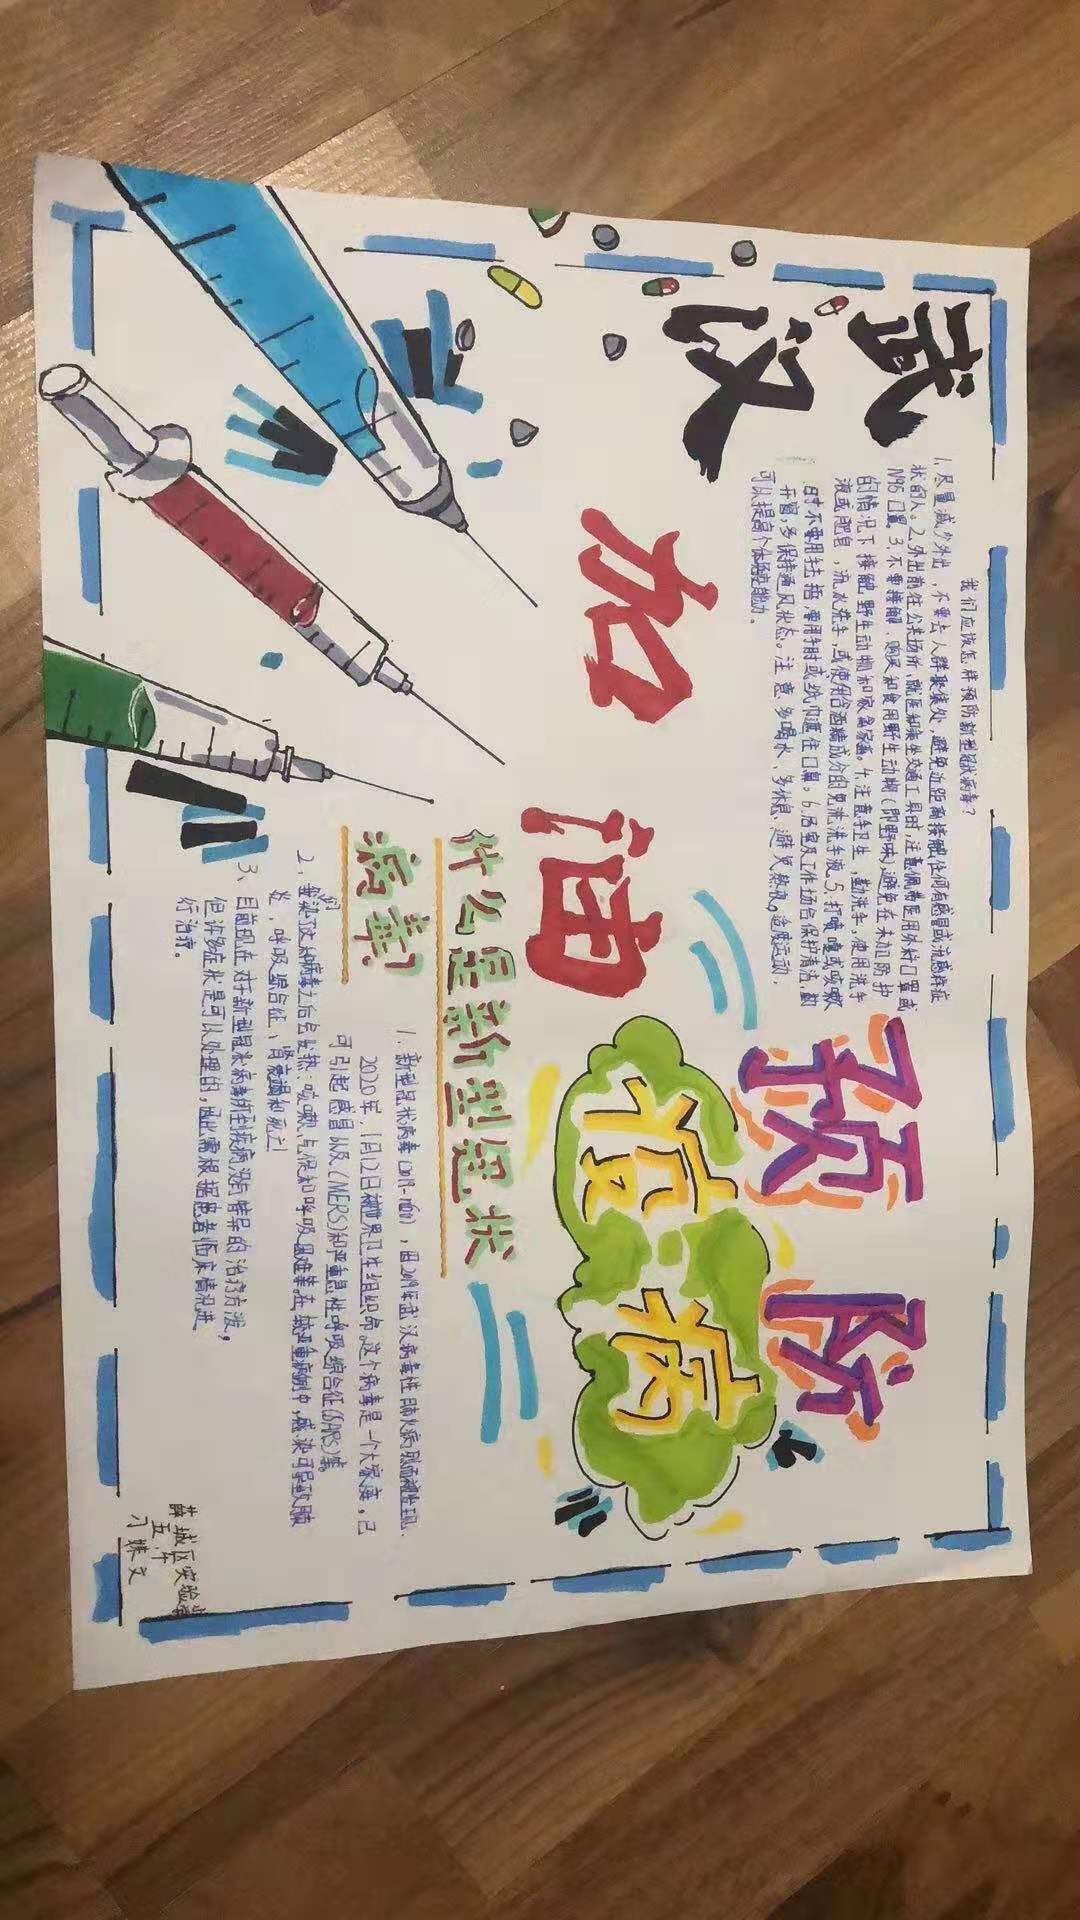 武汉
加油
预防
疫病
我们应该怎样预防新型冠状病毒？
1.尽量减少外出，不要去人群聚集处，避免近距离接触任何有感冒或流感样症
状的人。2.外出前往公共场所，就医和乘坐交通工具时，注意佩带医用外科口罩或
N95口罩。3.不要接触、购买和食用野生动物（即野味）避免在未加防护
的情况下接触野生动物和家禽家畜。4.注意手卫生，勤洗手，使用洗手
液或肥皂，流水洗手，或使用含酒精成分的免洗洗手液。5.打喷嚏或咳嗽
时不要用手捂，要用手肘或纸巾遮住口鼻。6.居室及工作场合保护清洁，勤
开窗，多保持通风状态。注意多喝水，多休息，避免熬夜。适度运动，
可以提高个体免疫能力。
什么是新型冠状
病毒？
1.新型冠状病毒（2019-nCoV），因2019年武汉病毒性肺炎病例而被发现，
2020年，1月12日被世界卫生组织命，这个病毒是一个大家庭，已
可引起感冒以及（MERS）和严重急性呼吸综合征（SARS）等。
2、感染了这种病毒之后会发热：咳嗽、气促和呼吸困难等。在较严重病例中，感染可导致肺
炎，呼吸综合征，肾衰竭和死亡！
3、目前现在对于新型冠状病毒所到疾病没有特异的治疗方法，
但许多症状是可以处理的，因此需根据患者临床情况进
行治疗。
薛城区实验学
五
习 文